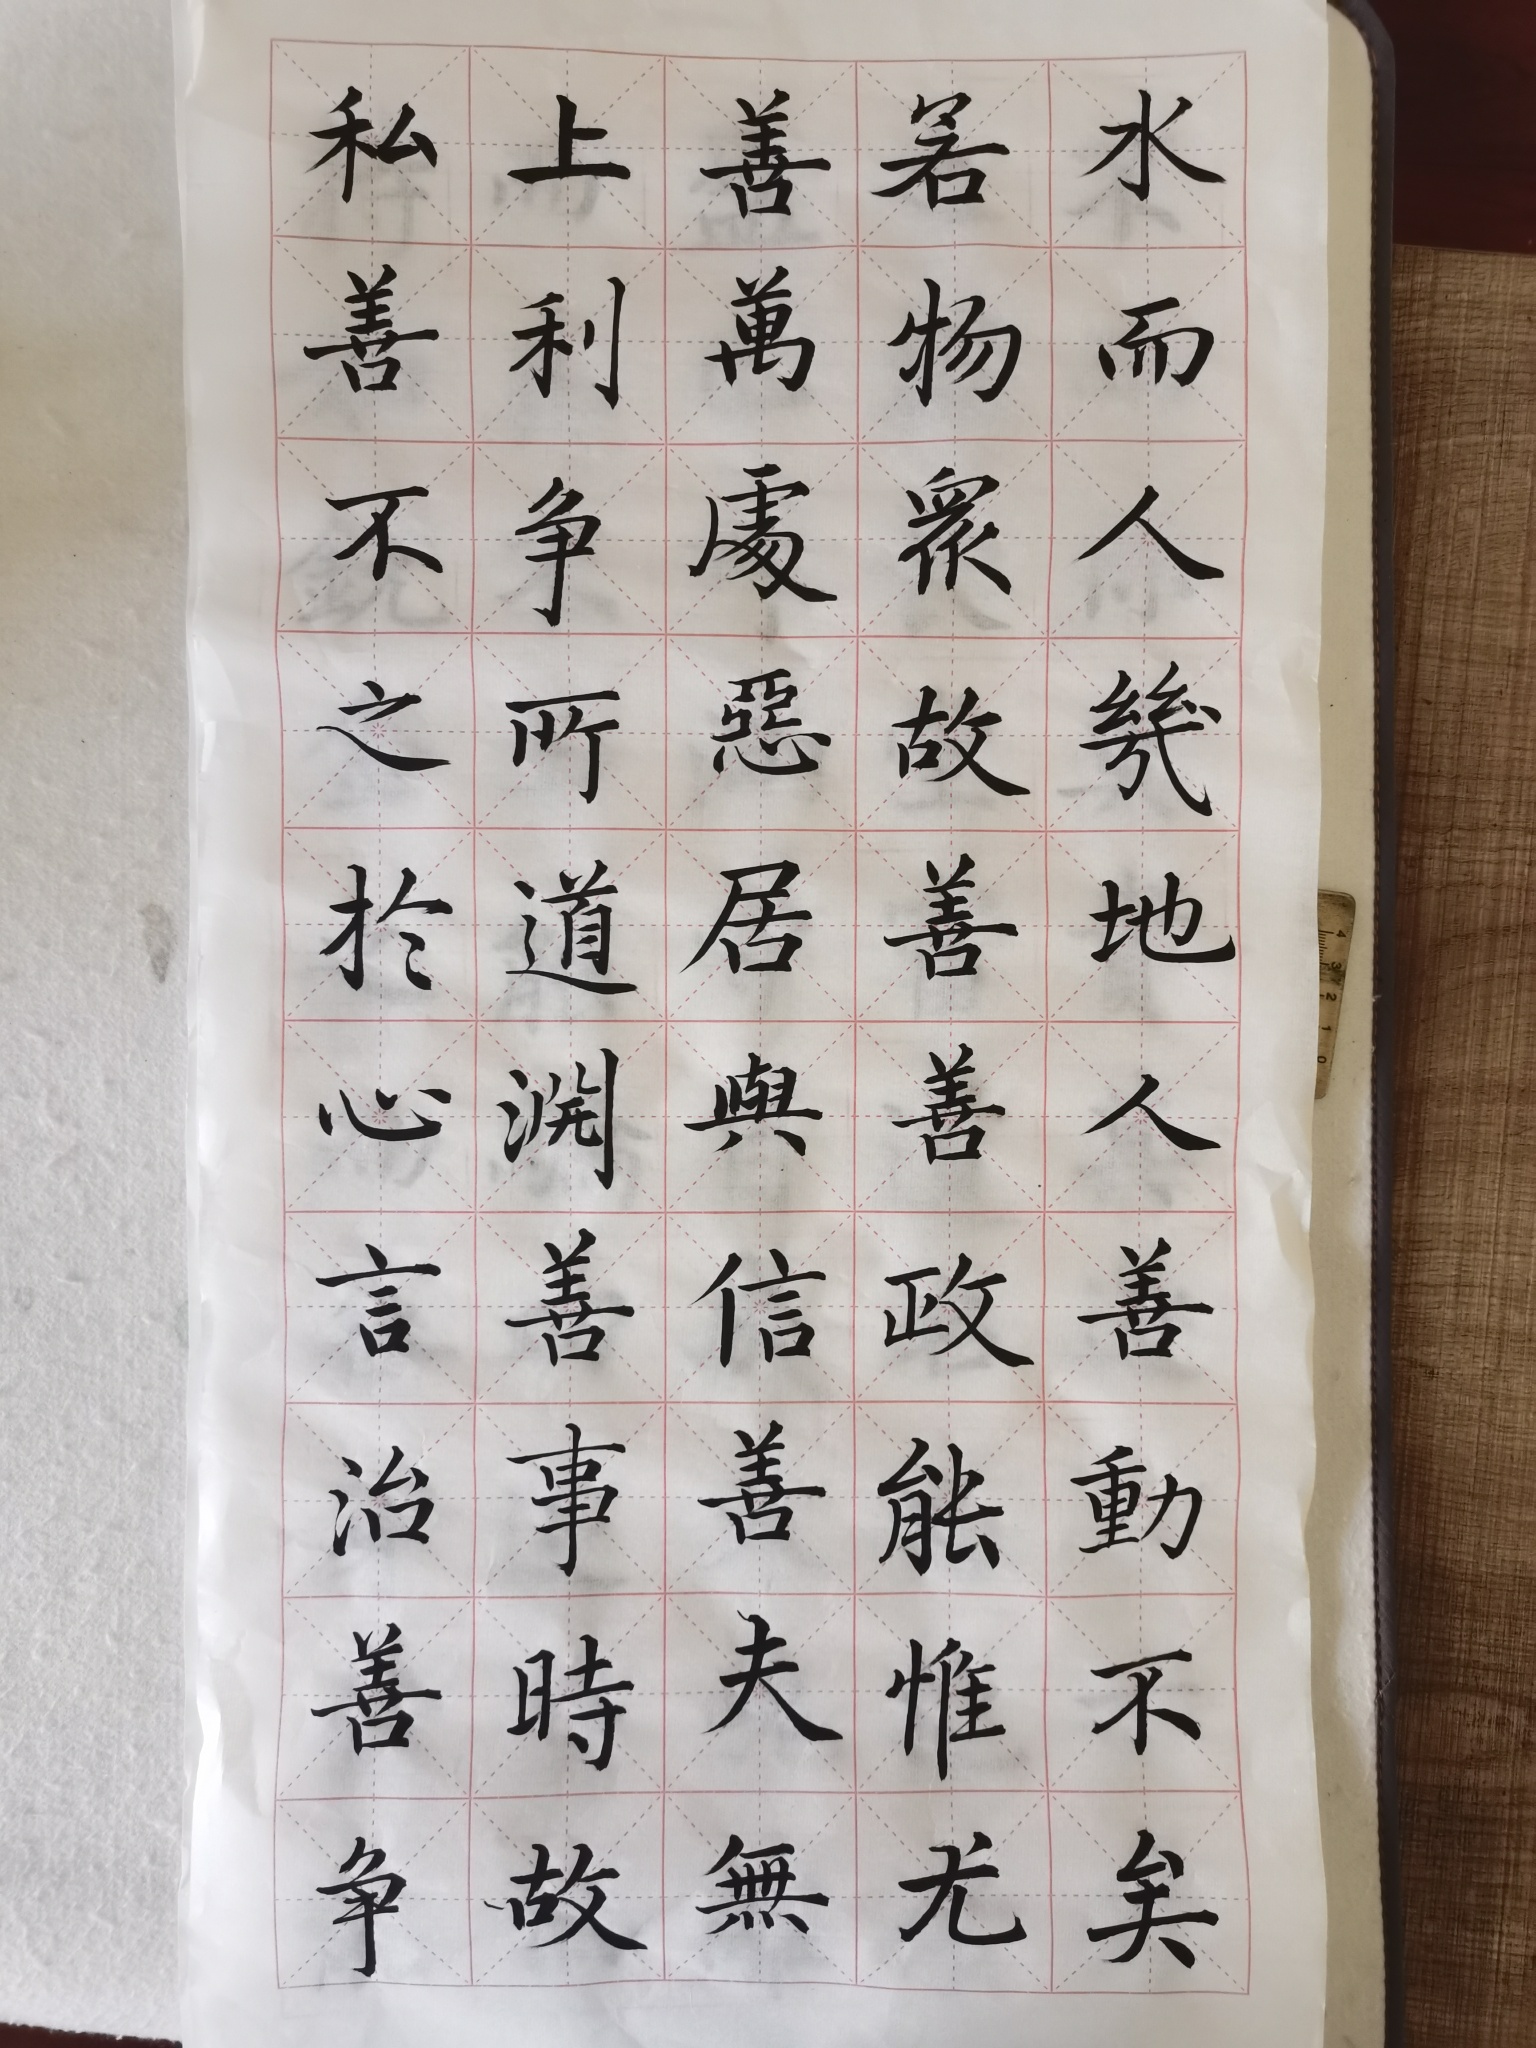 私上善若水
善利萬物而
不争處眾人
之所惡故幾
於道居善地
心淵與善人
言善信政善
治事善能動
善時夫惟不
争故無尤矣
4 3 2 1 0